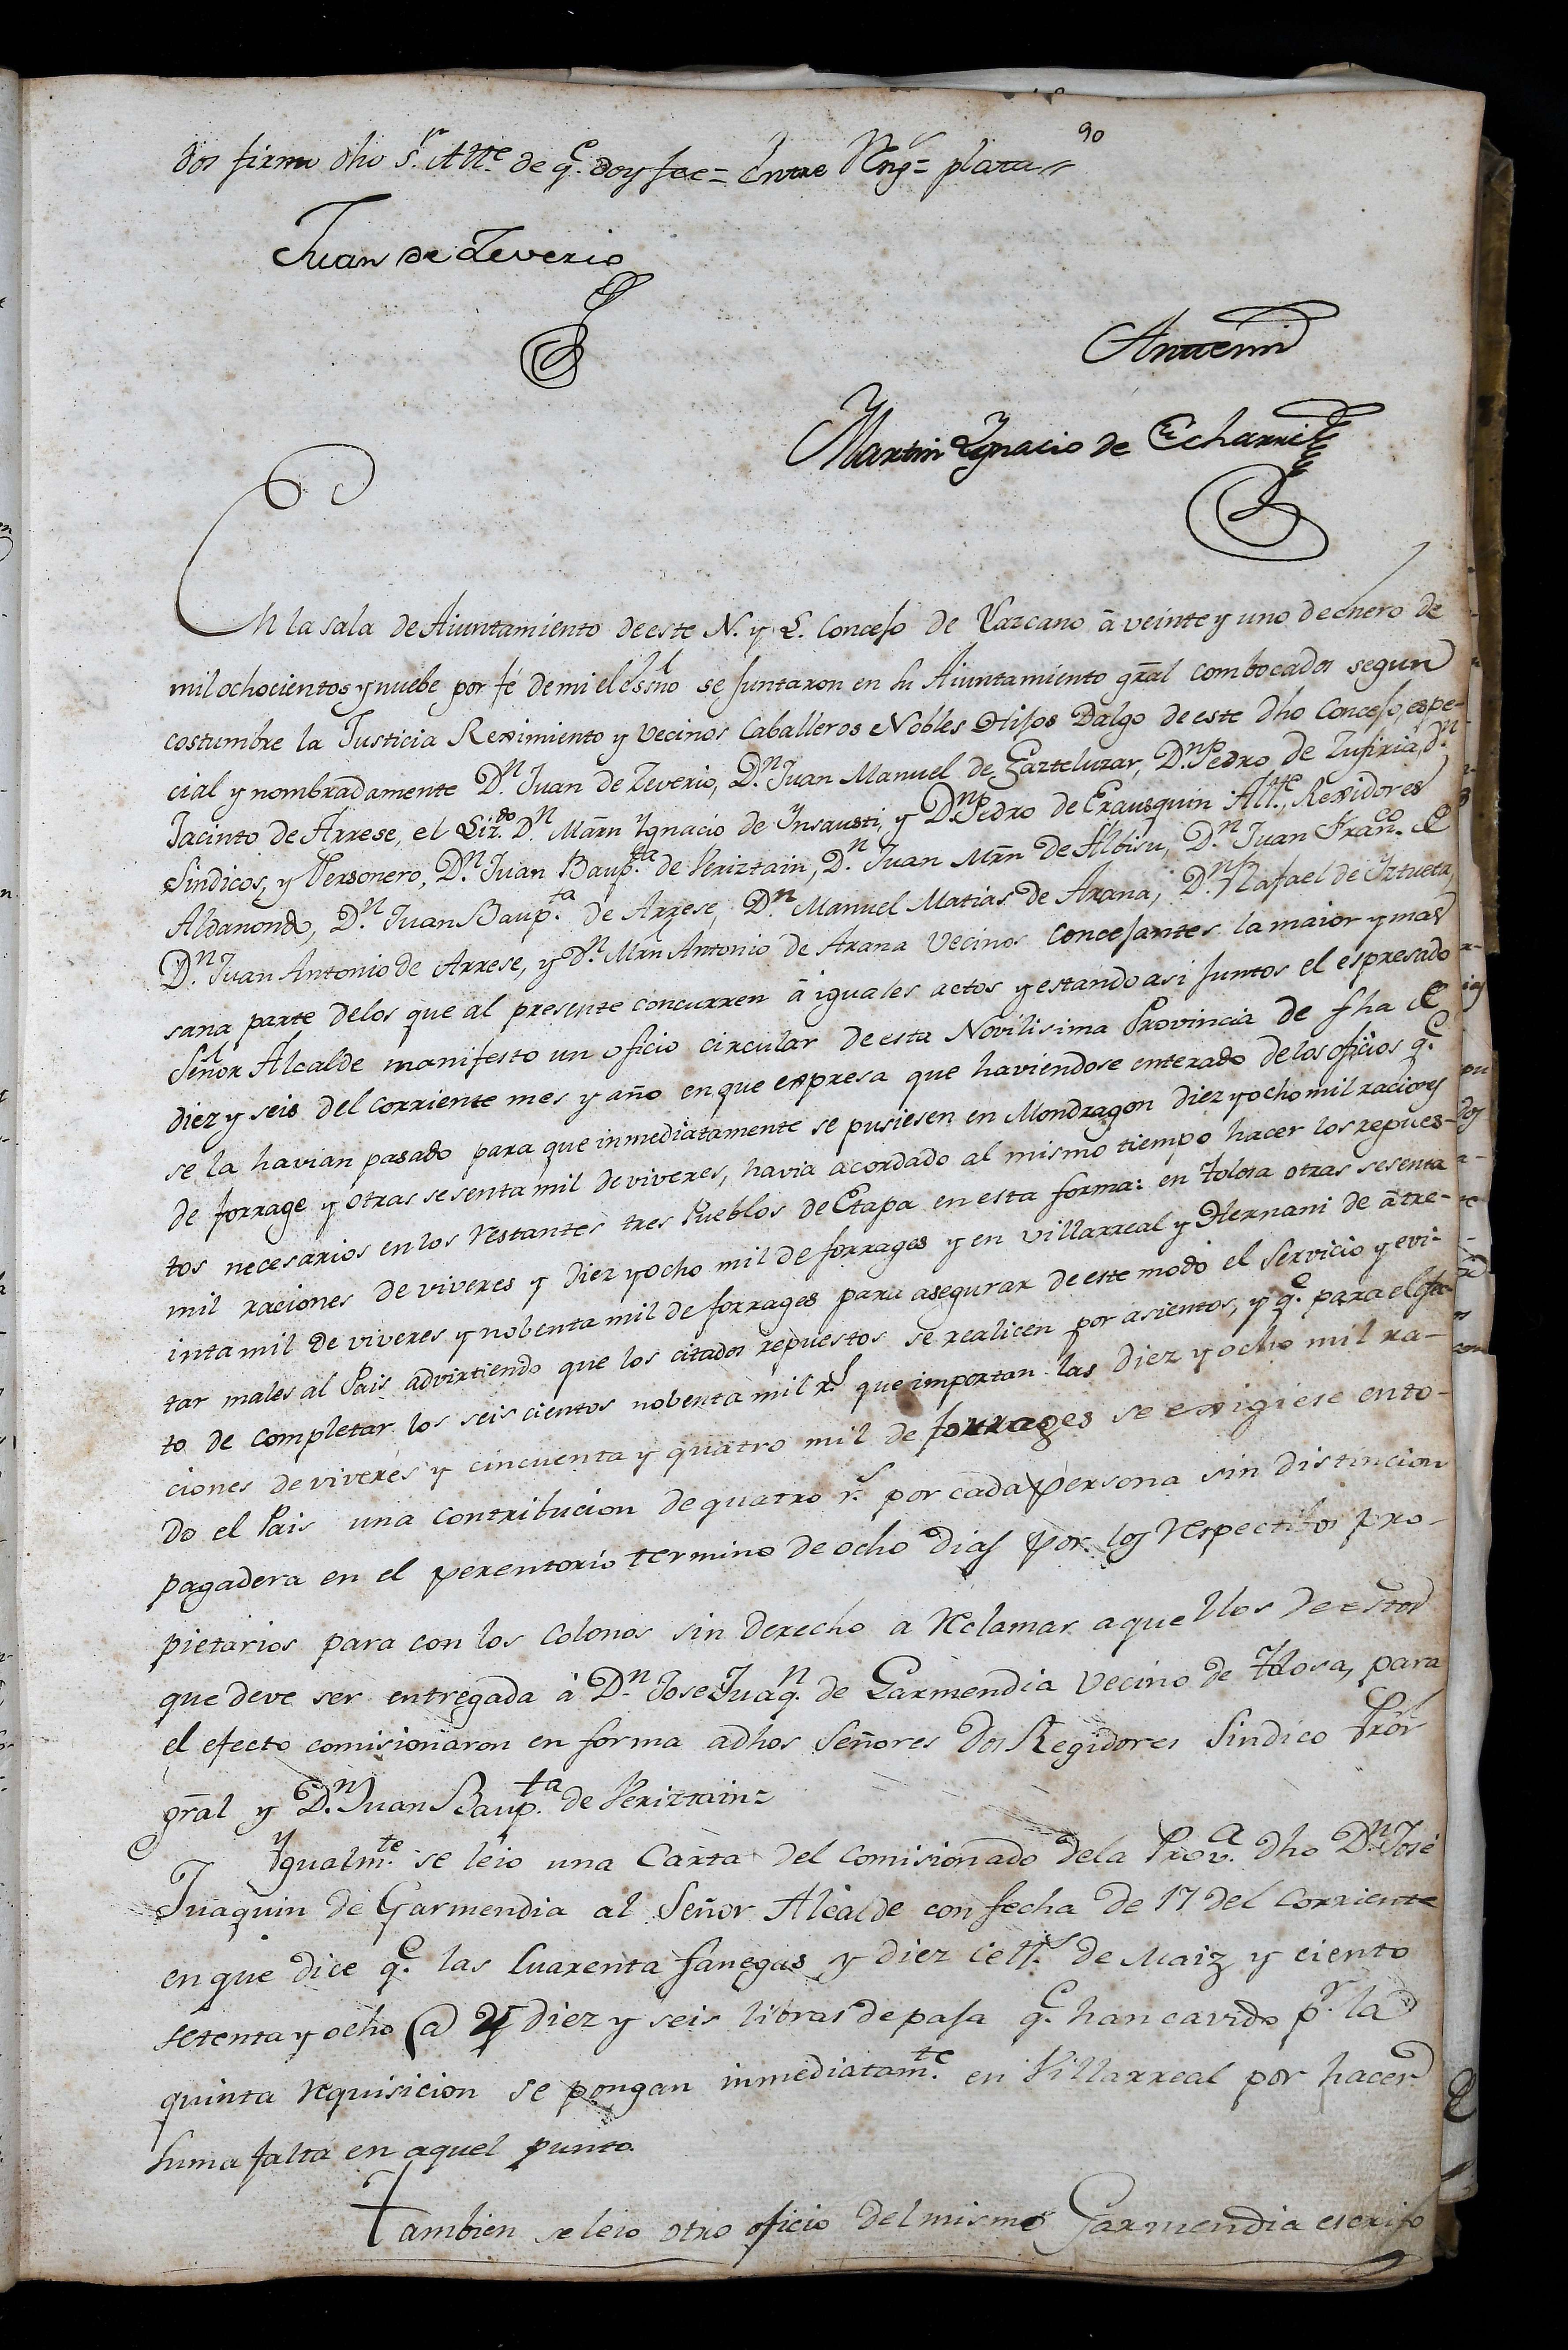 90
dos firmo dho S.r Alle. de q.e doy fee = Entre Reng.s = plata //
Juan de Zeverio
Antemi
Martin Ygnacio de Echarri
En la sala de Aiuntamiento de este N. y L. Concejo de Lazcano â veinte y uno de enero de
mil ochocientos y nuebe por fé de mi el Essno se juntaron en su Aiuntamiento gral combocados segun
costumbre la Justicia Reximiento y vecinos Caballeros Nobles Hijos Dalgo de este dho Concejo, espe-
cial y nombradamente D.n Juan de Zeverio, D.n Juan Manuel de Gazteluzar, D.n Pedro de Zufiria, d.n
Jacinto de Arrese, el Liz.do D.n Mărn Ygnacio de Ynsausti, y D.n Pedro de Erausquin Alle., Rexidores
Sindicos, y Personero, D.n Juan Baup.ta de Veriztain, D.n Juan Mrn de Albisu, D.n Juan Fran.co de
Aldanondo, D.n Juan Baup.ta de Arrese, D.n Manuel Matias de Arana, D.n Rafael de Iztueta,
D.n Juan Antonio de Arrese, y D.n Mrn Antonio de Arana vecinos concejantes la maior y mas
sana parte delos que al presente concurren â iguales actos y estando asi juntos el espresado
Señor Alcalde manifesto un oficio circular de esta Novilisima Provincia de fha de
diez y seis del corriente mes y año en que expresa que haviendose enterado delos oficios q.e
se la havian pasado para que inmediatamente se pusiesen en Mondragon diez y ocho mil raciones
de forrage y otras sesenta mil de viveres, havia acordado al mismo tiempo hacer los repues-
tos necesarios en los restantes tres Pueblos de Etapa en esta forma: en Tolosa otras sesenta
mil raciones de viveres y diez y ocho mil de forrages y en Villarreal y Hernani de â tre-
inta mil de viveres y nobenta mil de forrages para asegurar de este modo el servicio y evi-
tar males al Pais advirtiendo que los citados repuestos se realicen por asientos, y q.e para el efec-
to de completar los seis cientos nobenta mil r.s que importan las diez y ocho mil ra-
ciones de viveres y cincuenta y quatro mil de forrages se exigiese en to-
do el Pais una contribucion de quatro r.s por cada persona sin distincion
pagadera en el perentorio termino de ocho dias por los respectibos pro-
pietarios para con los colonos sin derecho a reclamar aquellos de estos
que deve ser entregada à D.n Jose Juaq.n de Garmendia vecino de Tolosa, para
el efecto comisionaron en forma a dhos Señores dos Regidores Sindico Pror
gral y D.n Juan Baup.ta de Veriztain=
Ygualm.te se leio una Carta del comisionado dela Prov.a dho D.n José
Juaquin de Garmendia al Señor Alcalde con fecha de 17 del corriente
en que dice q.e las cuarenta fanegas y diez cell.s de Maiz y ciento
setenta y ocho @ y diez y seis libras de paja q.e han cavido p.r la
quinta requisicion se pongan inmediatam.te en Villarreal por hacer
suma falta en aquel punto.
Tambien se leio otro oficio del mismo Garmendia escrito